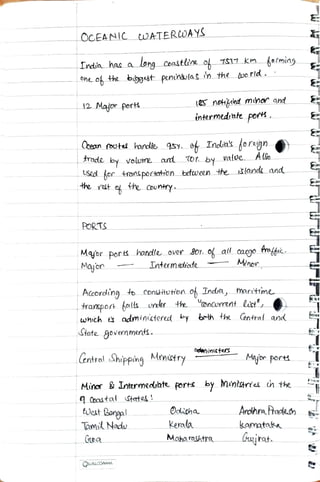 OCEANIC WATERWAYS
India has a long coastline of 7517 km forming
one of the biggest peninsulas in the world.
12 Major ports 185 notified minor and
intermediate ports.
Ocean routes handle 95% of India's foreign
trade by volume and 70% by value. Also
used for transportation between the islands and
the rest of the country.
PORTS
Major ports handle over 80% of all cargo traffic.
Major — Intermediate — Minor
According to constitution of India, maritime
transport falls under the "concurrent list",
which is administered by both the Central and
State governments.
Central Shipping Ministry administers Major ports
Minor & Intermediate ports by Ministries in the
9 coastal states:
West Bengal Odisha Andhra Pradesh
Tamil Nadu Kerala Karnataka
Goa Maharashtra Gujrat.